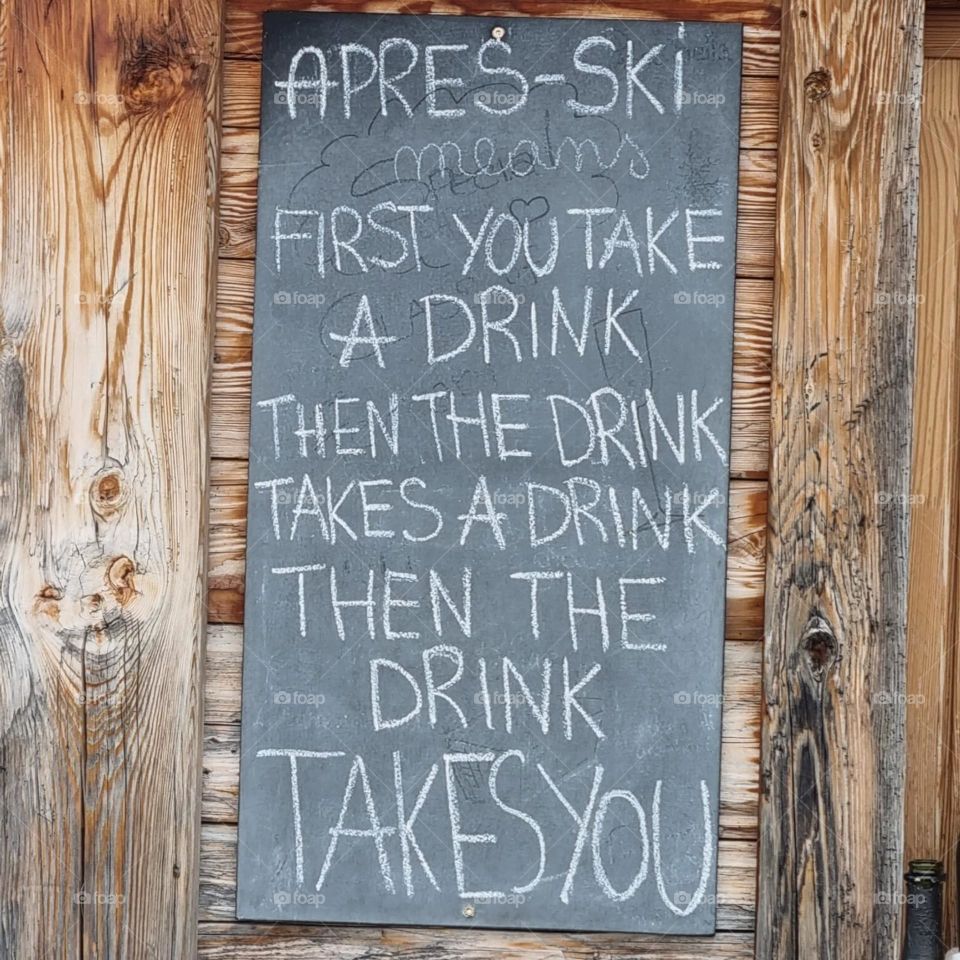 APRES-SKi
means
FIRST YOU TAKE
A DRINK
THEN THE DRINK
TAKES A DRINK
THEN THE
DRINK
TAKES YOU
SPECIAL
foap